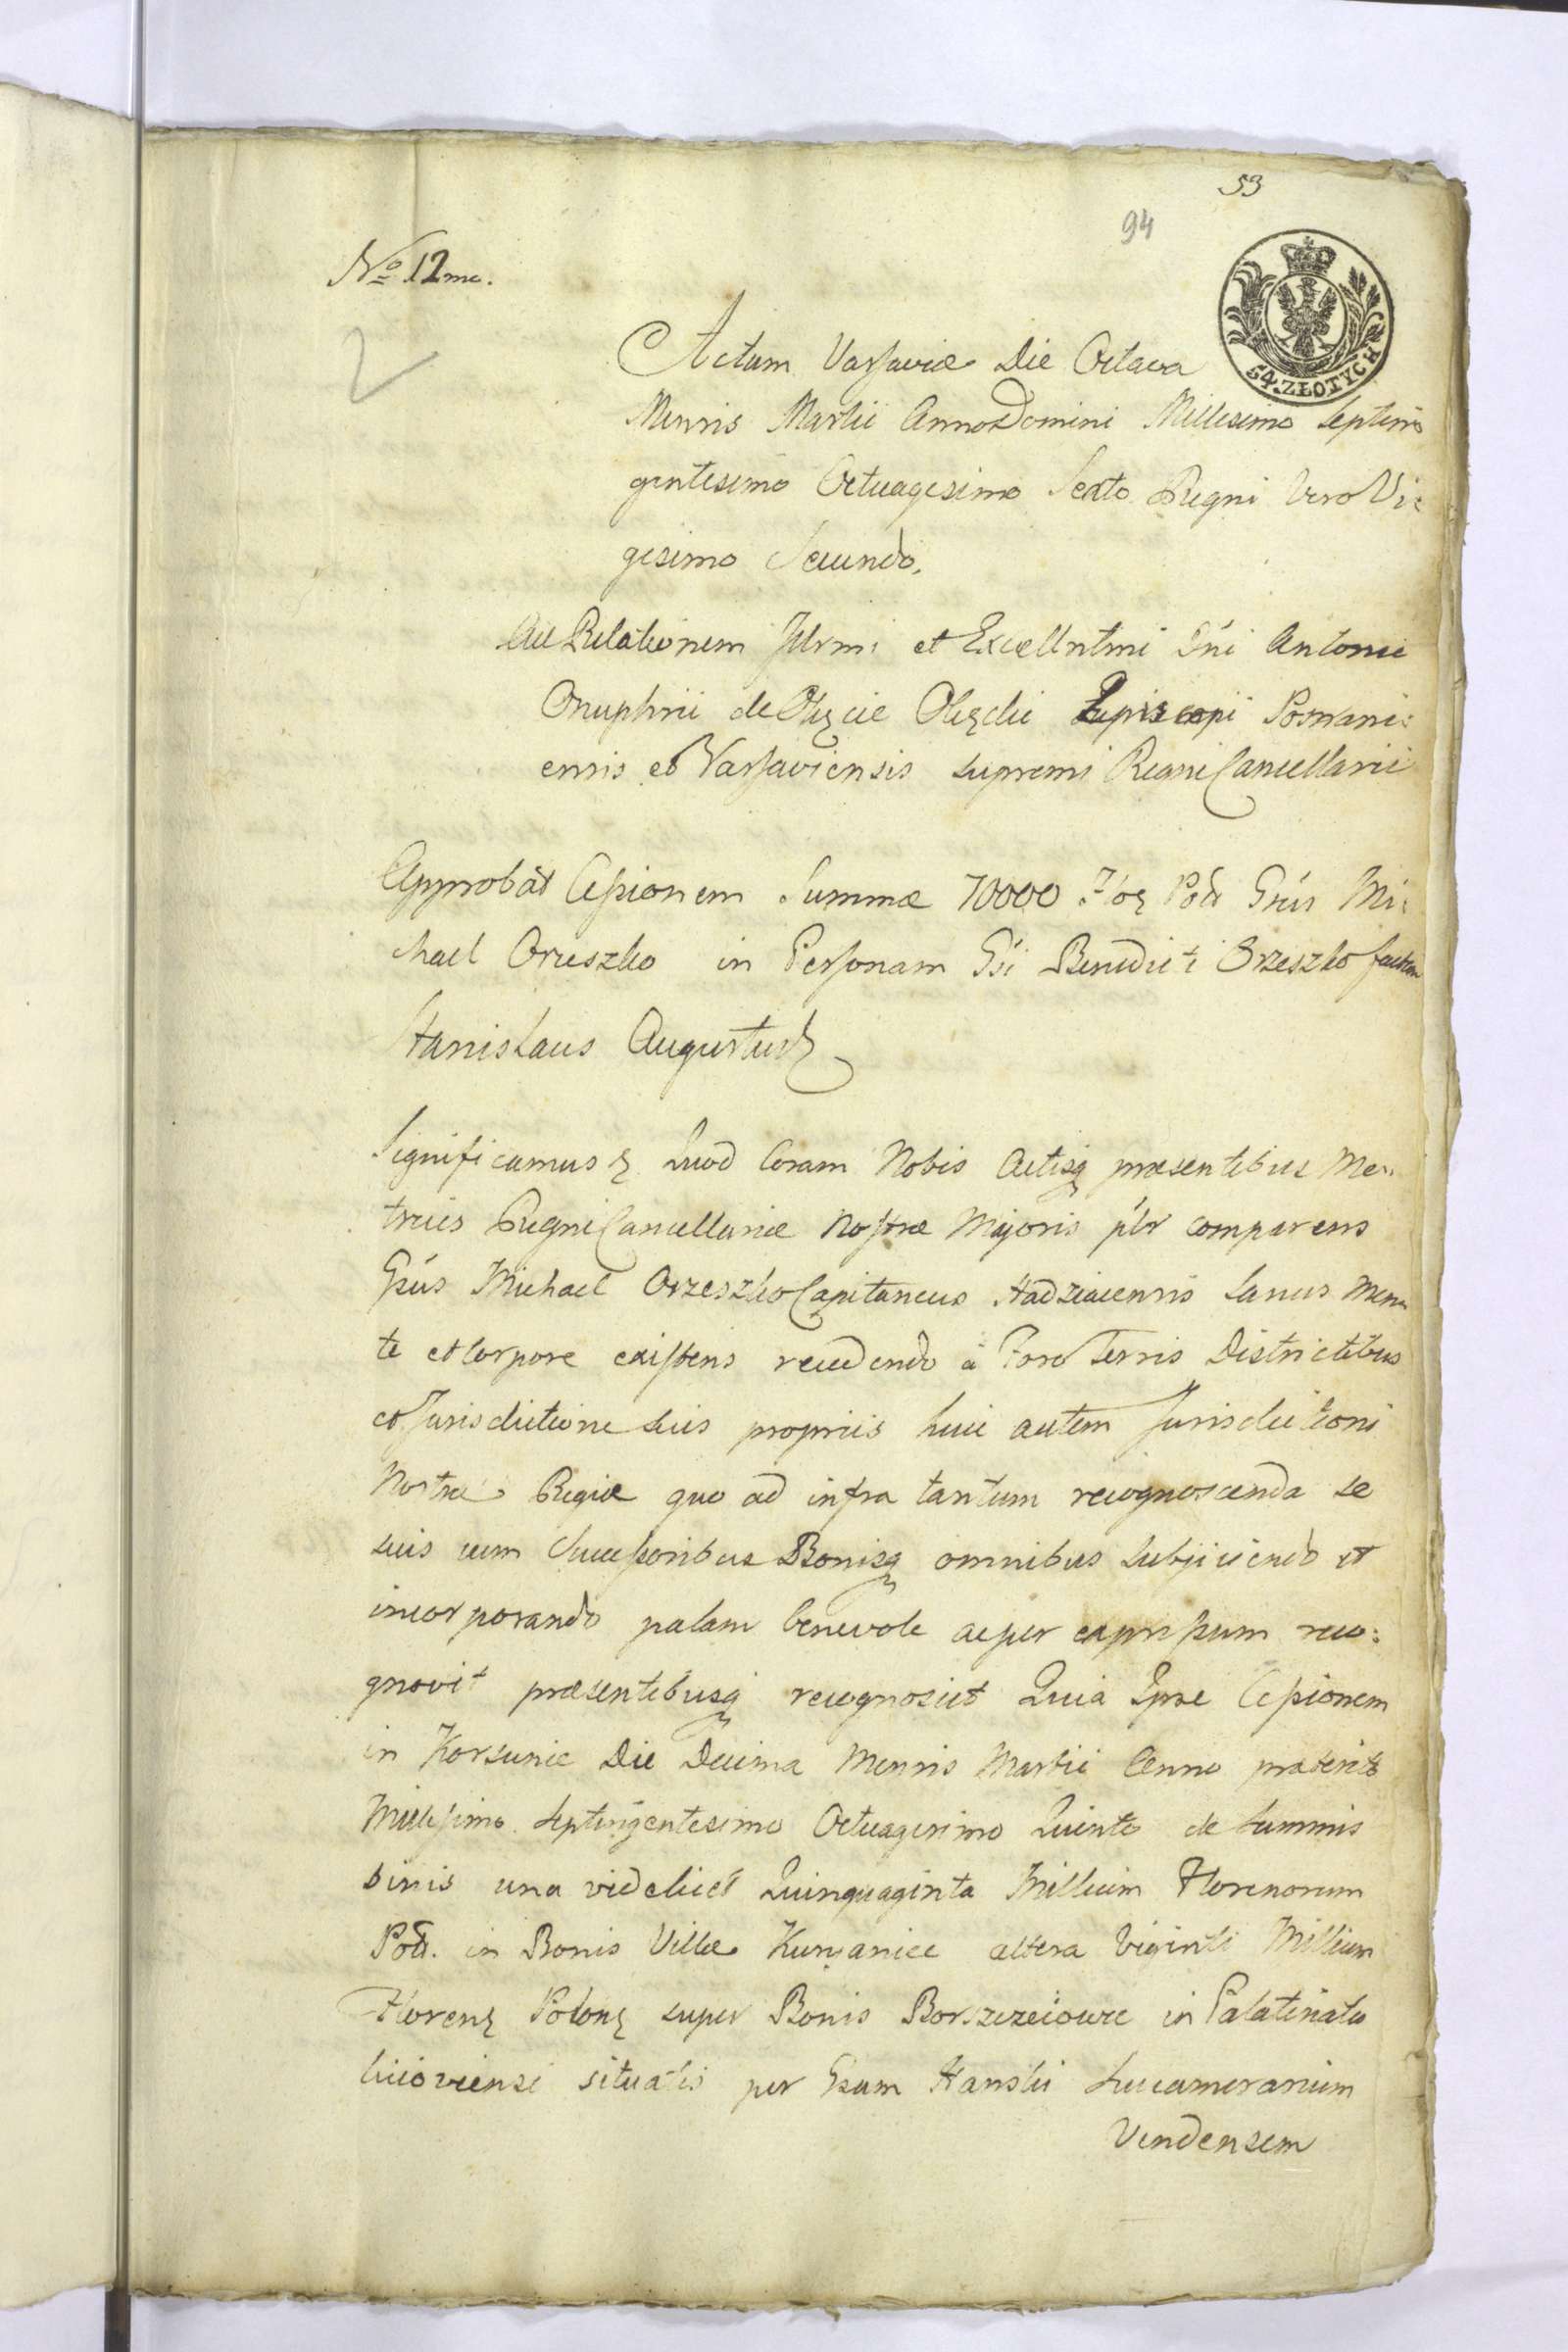 53
94
No 12mo.
54. ZŁOTYCH
Actum Varsaviæ Die Octava
Mensis Martii Anno Domini Millesimo Septin
gentesimo Octuagesimo Sexto Regni Vero Vi:
gesimo Secundo.
Ad Relationem Illrmi et Excellntmi Dni Antonii
Onuphrii de Okęcie Okęcki Episcopi Posnani:
ensis et Varsaviensis supremi Regni Cancellarii
Approbat Cessionem Summæ 70000 Flor Pol Gsus Mi:
chael Orzeszko in Personam Gsi Benedicti Orzeszko factam
Stanislaus Augustus
Significamus Quod Coram Nobis Actisq præsentibus Me
tricis Regni Cancellariæ Nostræ Majoris plr comparens
Gsus Michael Orzeszko Capitaneus Hadziacensis Sanus Men
te et Corpore existens recedendo à Foro Terris Districtibus
et Jurisdictione suis propriis huic autem Jurisdictioni
Nostræ Regiæ quo ad infra tantum recognoscenda se
suis cum Successoribus Bonisq omnibus subjiciendo et
incorporando palam benevole ac per expressum reco:
gnovit præsentibusq recognoscit Quia Ipse Cessionem
in Korsunie Die Decima Mensis Martii Anno præterito
Millesimo Septingentesimo Octuagesimo Quinto de Summis
binis una videlicet Quinquaginta Millium Florenorum
Pol. in Bonis Villæ altera Viginti Millium
Floren Polon super Bonis in Palatinatu
Kiioviensi situatis per Gsum Hanski Succamerarium
Vendensem